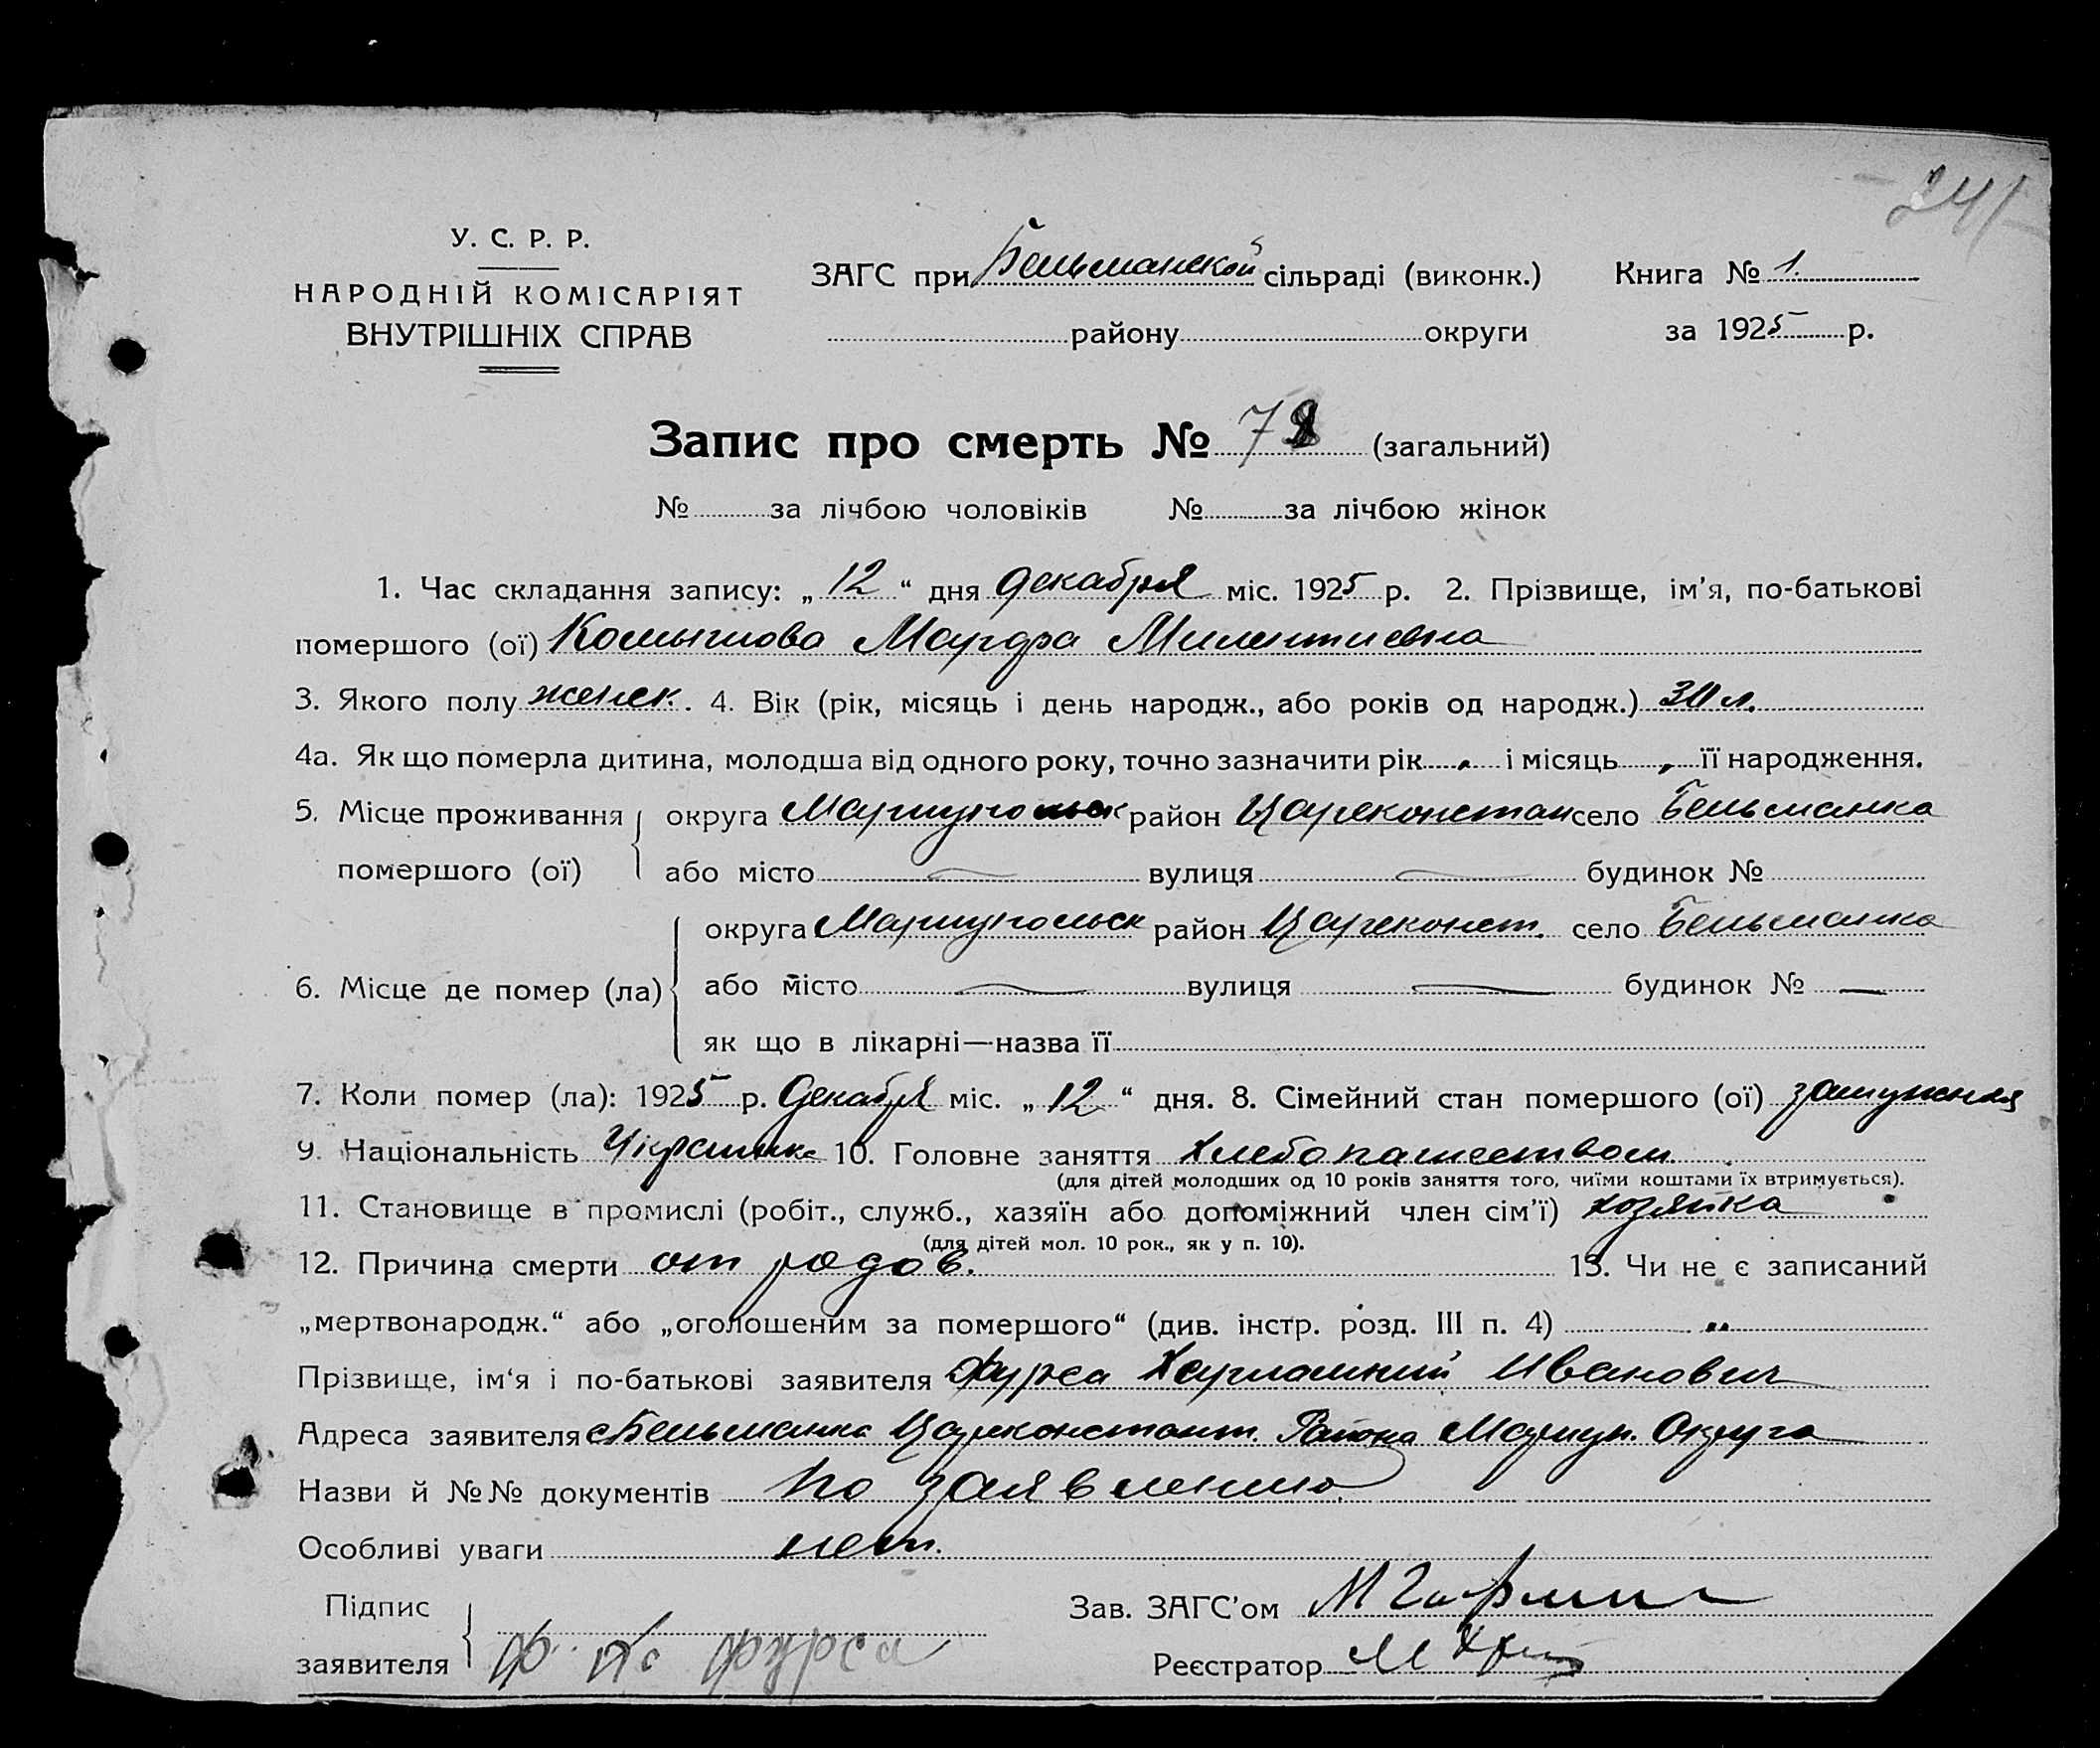 241
У. С. Р. Р.
НАРОДНІЙ КОМІСАРІЯТ
ВНУТРІШНІХ СПРАВ
ЗАГС при Бельманской сільраді (виконк.) Книга № 1.
району округи за 1925 р.
Запис про смерть № 78 (загальний)
№ за лічбою чоловіків № за лічбою жінок
1. Час складання запису: „12“ дня декабря міс. 1925 р. 2. Прізвище, ім'я, по-батькові
помершого (ої) Комышова Марфа Милентиевна
3. Якого полу женск. 4. Вік (рік, місяць і день народж., або років од народж.) л.
4а. Як що померла дитина, молодша від одного року, точно зазначити рік „ і місяць „ її народження.
5. Місце проживання округа Мариупольск район Цареконстан село Бельманка
помершого (ої) або місто — вулиця — будинок №
округа Мариупольск район Цареконст. село Бельманка
6. Місце де помер (ла) або місто — вулиця — будинок № —
як що в лікарні—назва її
7. Коли помер (ла): 1925 р. Декабря міс. „12“ дня. 8. Сімейний стан помершого (ої) замужняя
9. Національність Украинка 10. Головне заняття Хлебопашеством
(для дітей молодших од 10 років заняття того, чиїми коштами їх втримується).
11. Становище в промислі (робіт., служб., хазяїн або допоміжний член сім'ї) хозяйка
(для дітей мол. 10 рок., як у п. 10).
12. Причина смерти от родов. 13. Чи не є записаний
„мертвонародж.“ або „оголошеним за помершого“ (див. інстр. розд. III п. 4) „
Прізвище, ім'я і по-батькові заявителя Фурса Харлампий Иванович
Адреса заявителя с Бельманка Цареконстант. Района Мариуп. Округа
Назви й №№ документів по заявлению
Особливі уваги нет.
Підпис Зав. ЗАГС'ом М
заявителя фурса Реєстратор М